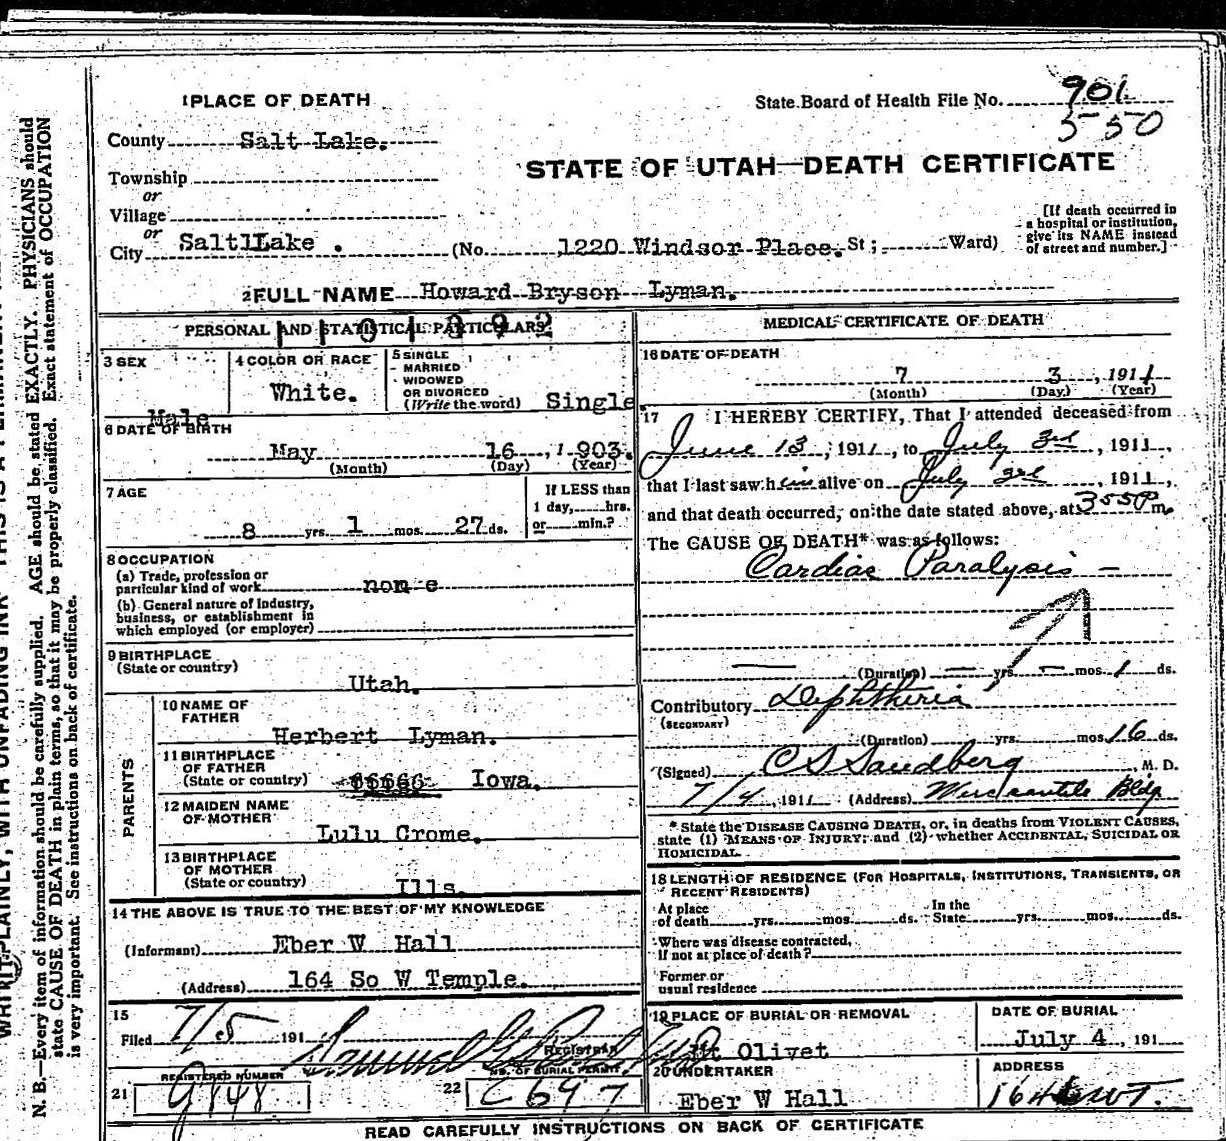 1 PLACE OF DEATH
State Board of Health File No. 901
550
County Salt Lake.
STATE OF UTAH—DEATH CERTIFICATE
Township
or
Village
or
City Salt1Lake .
(No. 1220 Windsor Place. St ; Ward)
[If death occurred in
a hospital or institution,
give its NAME instead
of street and number.]
2 FULL NAME Howard Bryson Lyman.
PERSONAL AND STATISTICAL PARTICULARS
3 SEX
Male
4 COLOR OR RACE
White.
5 SINGLE
MARRIED
WIDOWED
OR DIVORCED
(Write the word) Single.
6 DATE OF BIRTH
May 16 , 1 903.
(Month) (Day) (Year)
7 AGE
8 yrs. 1 mos. 27 ds.
If LESS than
1 day, hrs.
or min.?
8 OCCUPATION
(a) Trade, profession or
particular kind of work non e
(b) General nature of industry,
business, or establishment in
which employed (or employer)
9 BIRTHPLACE
(State or country)
Utah.
PARENTS
10 NAME OF
FATHER
Herbert Lyman.
11 BIRTHPLACE
OF FATHER
(State or country) Iowa.
12 MAIDEN NAME
OF MOTHER
Lulu Crome.
13 BIRTHPLACE
OF MOTHER
(State or country)
Ills.
14 THE ABOVE IS TRUE TO THE BEST OF MY KNOWLEDGE
(Informant) Eber W Hall
(Address) 164 So W Temple.
15
Filed 7/5 191
REGISTRAR
REGISTERED NUMBER
21 9148
NO. OF BURIAL PERMIT
22 C 6497
MEDICAL CERTIFICATE OF DEATH
16 DATE OF DEATH
7 3 , 1911
(Month) (Day) (Year)
17 I HEREBY CERTIFY, That I attended deceased from
June 13, 1911, to July 3rd, 1911,
that I last saw him alive on July 3rd, 1911,
and that death occurred, on the date stated above, at 355 P m.
The CAUSE OF DEATH* was as follows:
Cardiac Paralysis —
(Duration) — yrs. — mos. 1 ds.
Contributory Diphtheria
(SECONDARY)
(Duration) yrs. mos. 16 ds.
(Signed) C S Sandberg , M. D.
7/4, 1911 (Address) Mercantile Bldg
* State the DISEASE CAUSING DEATH, or, in deaths from VIOLENT CAUSES,
state (1) MEANS OF INJURY; and (2) whether ACCIDENTAL, SUICIDAL OR
HOMICIDAL.
18 LENGTH OF RESIDENCE (FOR HOSPITALS, INSTITUTIONS, TRANSIENTS, OR
RECENT RESIDENTS)
At place
of death yrs. mos. ds.
In the
State yrs. mos. ds.
Where was disease contracted,
If not at place of death?
Former or
usual residence
19 PLACE OF BURIAL OR REMOVAL
Mt Olivet
DATE OF BURIAL
July 4 , 191
20 UNDERTAKER
Eber W Hall
ADDRESS
READ CAREFULLY INSTRUCTIONS ON BACK OF CERTIFICATE
N. B.—Every item of information should be carefully supplied. AGE should be stated EXACTLY. PHYSICIANS should
state CAUSE OF DEATH in plain terms, so that it may be properly classified. Exact statement of OCCUPATION
is very important. See instructions on back of certificate.